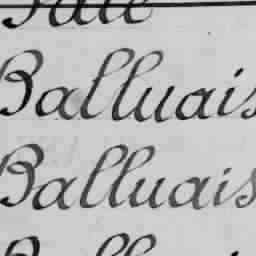 Balluais
Balluais